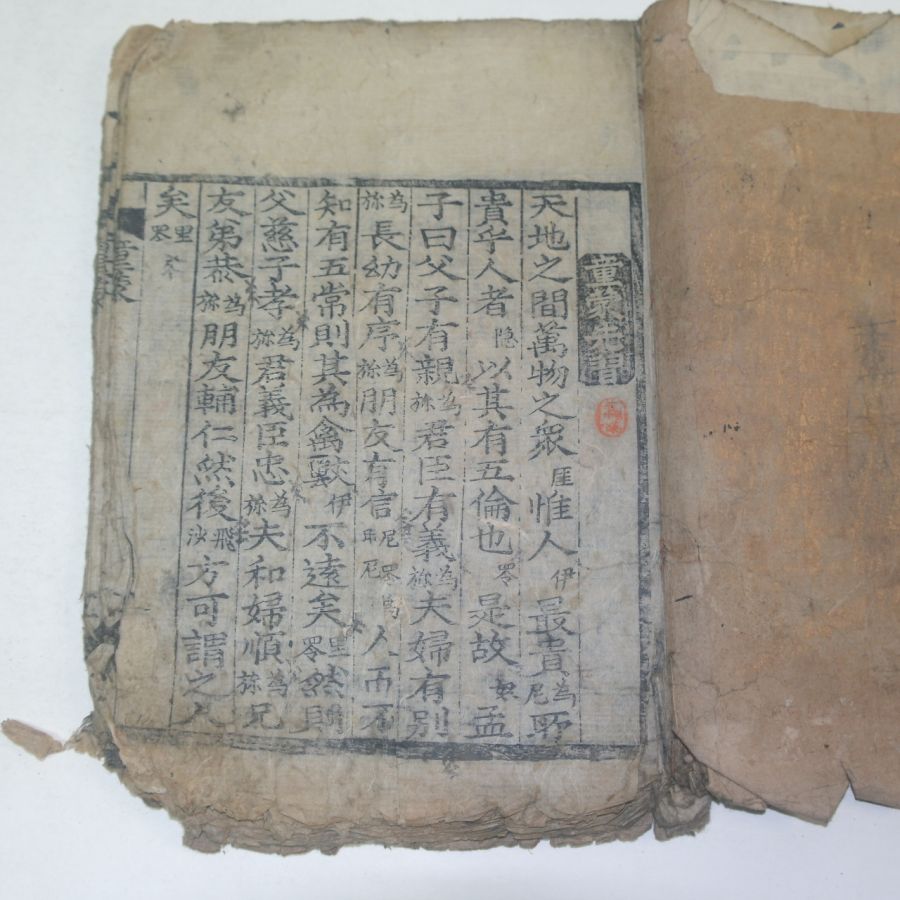 童蒙先習
天地之間萬物之衆厓惟人伊最貴為尼所
貴乎人者隐以其有五倫也罗是故奴孟
子曰父子有親為弥君臣有義為弥夫婦有別
為弥長幼有序為弥朋友有信尼罗為尼人而不
知有五常則其為禽獸伊不遠矣里罗然則
父慈子孝為弥君義臣忠為弥夫和婦順為弥兄
友弟恭為弥朋友輔仁然後飛沙方可謂之人
矣里罗
童蒙